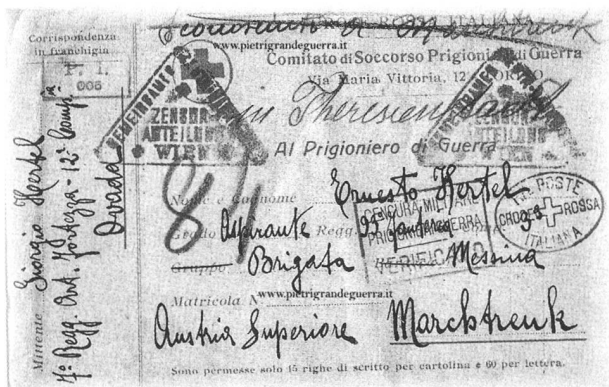 Corrispondenza
in franchigia
P. I.
005
www.pietrigrandeguerra.it
CROCE ROSSA ITALIANA
Comitato di Soccorso Prigionieri di Guerra
Via Maria Vittoria, 12 - TORINO
Theresienstadt
ZENSUR-
ABTEILUNG
WIEN
ZENSUR-
ABTEILUNG
WIEN
Al Prigioniero di Guerra
81
Nome e Cognome Ernesto Hertel
Grado Aspirante Regg. 93 fanteria
CENSURA MILITARE
PRIGIONIERI GUERRA
VERIFICATO
LE POSTE
CROCE ROSSA
ITALIANA
Gruppo Brigata Messina
Matricola N.
www.pietrigrandeguerra.it
Austria Superiore Marchtrenk
Sono permesse solo 15 righe di scritto per cartolina e 60 per lettera.
Mittente Giorgio Hertel
7º Regg. Art. Fortezza - 12ª Comp.ia
Ovada